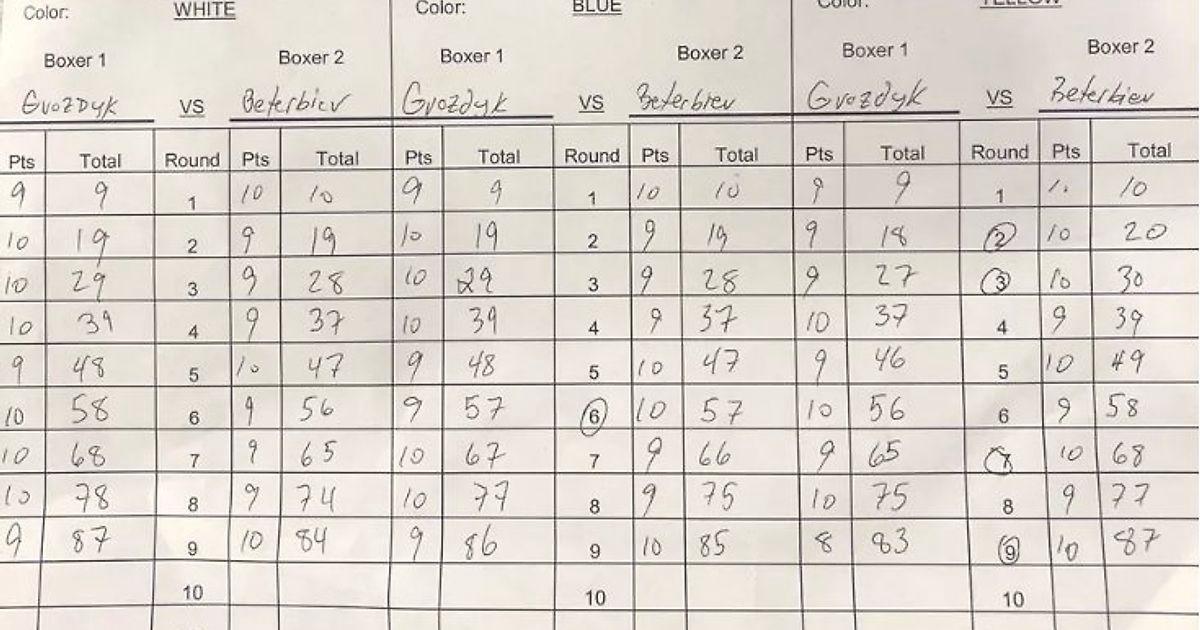 Color: WHITE Color: BLUE Color: YELLOW
Boxer 1 Boxer 2 Boxer 1 Boxer 2 Boxer 1 Boxer 2
Gvozdyk VS Beterbiev Gvozdyk VS Beterbiev Gvozdyk VS Beterbiev
Pts Total Round Pts Total Pts Total Round Pts Total Pts Total Round Pts Total
9 9 1 10 10 9 9 1 10 10 9 9 1 10 10
10 19 2 9 19 10 19 2 9 19 9 18 2 10 20
10 29 3 9 28 10 29 3 9 28 9 27 3 10 30
10 39 4 9 37 10 39 4 9 37 10 37 4 9 39
9 48 5 10 47 9 48 5 10 47 9 46 5 10 49
10 58 6 9 56 9 57 6 10 57 10 56 6 9 58
10 68 7 9 65 10 67 7 9 66 9 65 7 10 68
10 78 8 9 74 10 77 8 9 75 10 75 8 9 77
9 87 9 10 84 9 86 9 10 85 8 83 9 10 87
10 10 10